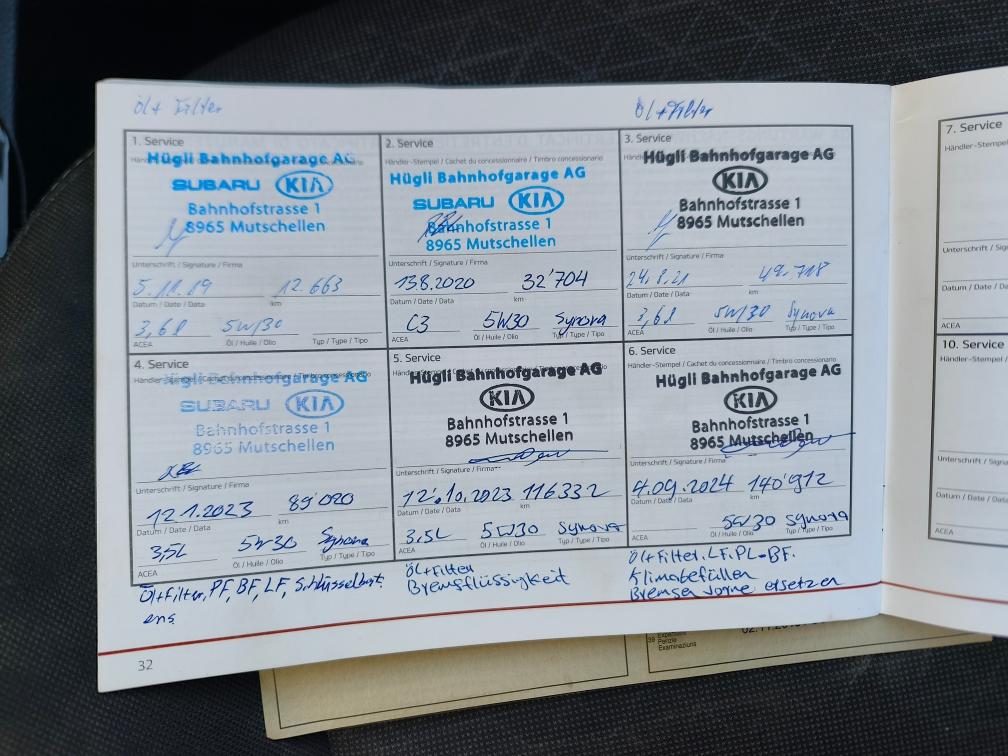 Öl+ Filter
Öl+Filter
1. Service
Hügli Bahnhofgarage AG
SUBARU KIA
Bahnhofstrasse 1
8965 Mutschellen
Unterschrift / Signature / Firma
5.11.19 12.663
Datum / Date / Data km
3,6l 5W/30
ACEA Öl / Huile / Olio Typ / Type / Tipo
2. Service
Händler-Stempel / Cachet du concessionnaire / Timbro concessionario
Hügli Bahnhofgarage AG
SUBARU KIA
Bahnhofstrasse 1
8965 Mutschellen
Unterschrift / Signature / Firma
13.8.2020 32'704
Datum / Date / Data km
C3 5W30 Synova
ACEA Öl / Huile / Olio Typ / Type / Tipo
3. Service
Hügli Bahnhofgarage AG
KIA
Bahnhofstrasse 1
8965 Mutschellen
Unterschrift / Signature / Firma
24.8.21 49.718
Datum / Date / Data km
3,6l 5W/30 Synova
ACEA Öl / Huile / Olio Typ / Type / Tipo
4. Service
Hügli Bahnhofgarage AG
SUBARU KIA
Bahnhofstrasse 1
8965 Mutschellen
Unterschrift / Signature / Firma
12.1.2023 89'020
Datum / Date / Data km
3,5L 5W30 Synova
ACEA Öl / Huile / Olio Typ / Type / Tipo
Öl+Filter, PF, BF, LF, Schlüsselbat.
5. Service
Hügli Bahnhofgarage AG
KIA
Bahnhofstrasse 1
8965 Mutschellen
Unterschrift / Signature / Firma
12.10.2023 116332
Datum / Date / Data km
3,5L 5W30 Synova
ACEA Öl / Huile / Olio Typ / Type / Tipo
Öl+Filter
Bremsflüssigkeit
6. Service
Händler-Stempel / Cachet du concessionnaire / Timbro concessionario
Hügli Bahnhofgarage AG
KIA
Bahnhofstrasse 1
8965 Mutschellen
Unterschrift / Signature / Firma
4.09.2024 140'912
Datum / Date / Data km
5W30 Synova
ACEA Öl / Huile / Olio Typ / Type / Tipo
Öl+Filter. LF. PL-BF.
Klimabefüllen
Bremsen vorne ersetzen
32
7. Service
Händler-Stempel
Unterschrift / Sign
Datum / Date / D
ACEA
10. Service
Händler-Stempel /
Unterschrift / Sign
Datum / Date / Data
ACEA
39
Perizia
Examinaziuns